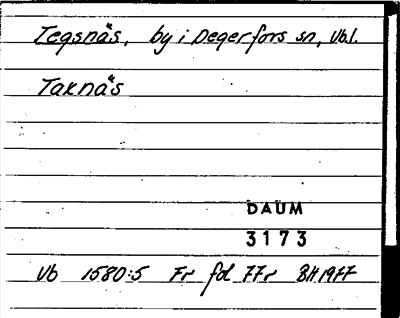 Tegsnäs, by i Degerfors sn, Vb.l.
Taknäs
DAUM
3173
Vb 1580:5 Fr fol 77r BH 1977